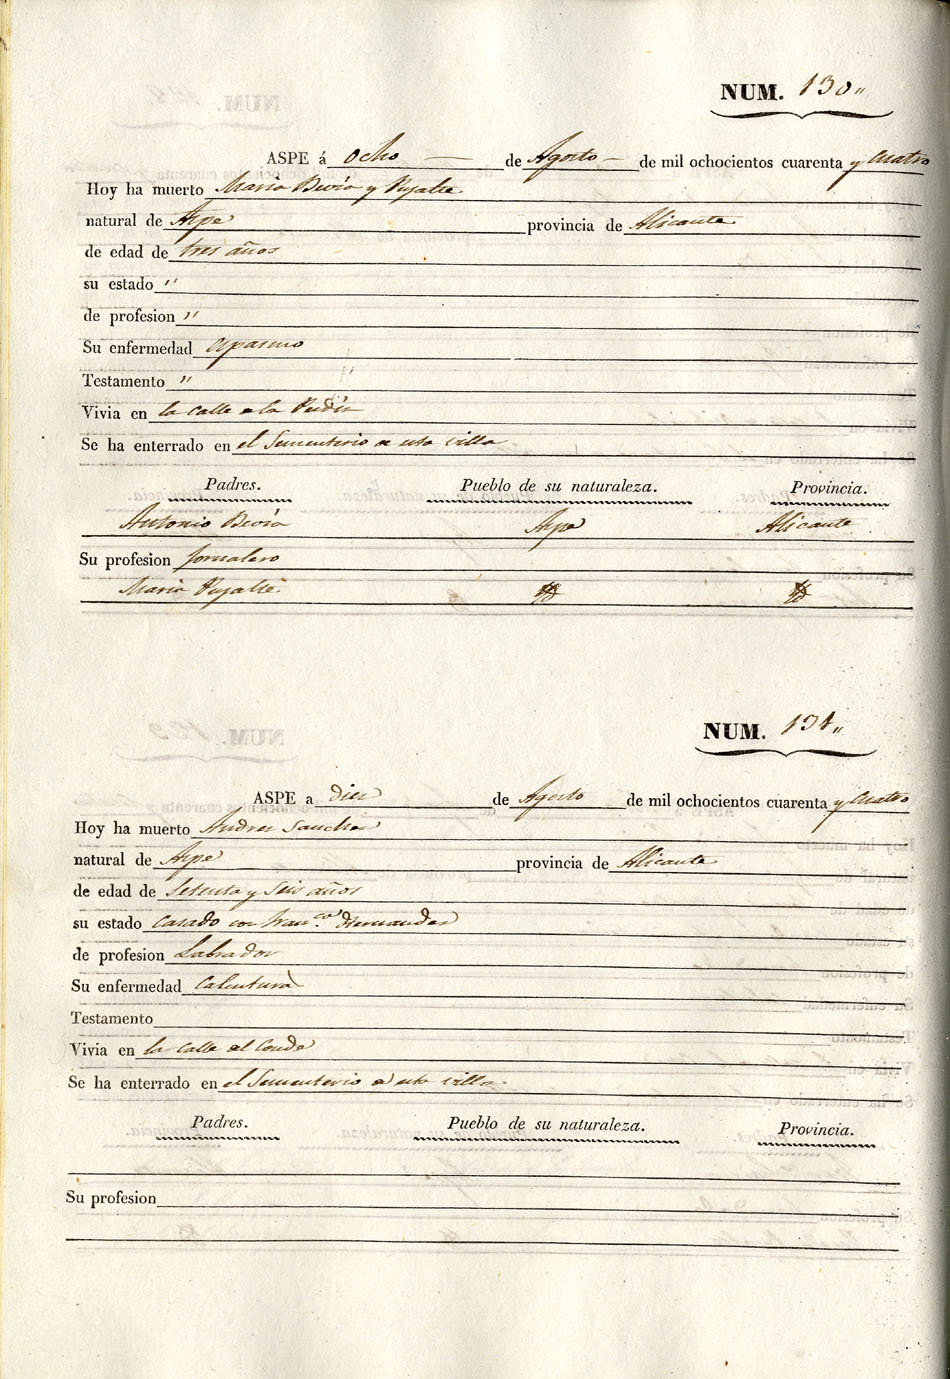 NUM. 130,,
ASPE á ocho — de Agosto — de mil ochocientos cuarenta y cuatro
Hoy ha muerto Maria Bevia y Pujalte
natural de Aspe provincia de Alicante
de edad de tres años
su estado "
de profesion "
Su enfermedad espasmo
Testamento "
Vivia en la calle a la
Se ha enterrado en el Sementerio a esta villa
Padres. Pueblo de su naturaleza. Provincia.
Antonio Bevia Aspe Alicante
Su profesion Jornalero
Maria Pujalte Yd Yd
NUM. 131,,
ASPE a diez de Agosto de mil ochocientos cuarenta y cuatro
Hoy ha muerto Andres Sanchez
natural de Aspe provincia de Alicante
de edad de Setenta y Seis años
su estado Casado con Fran.ca Hernandez
de profesion Labrador
Su enfermedad Calentura
Testamento
Vivia en la calle al Conde
Se ha enterrado en el Sementerio a esta villa
Padres. Pueblo de su naturaleza. Provincia.
Su profesion